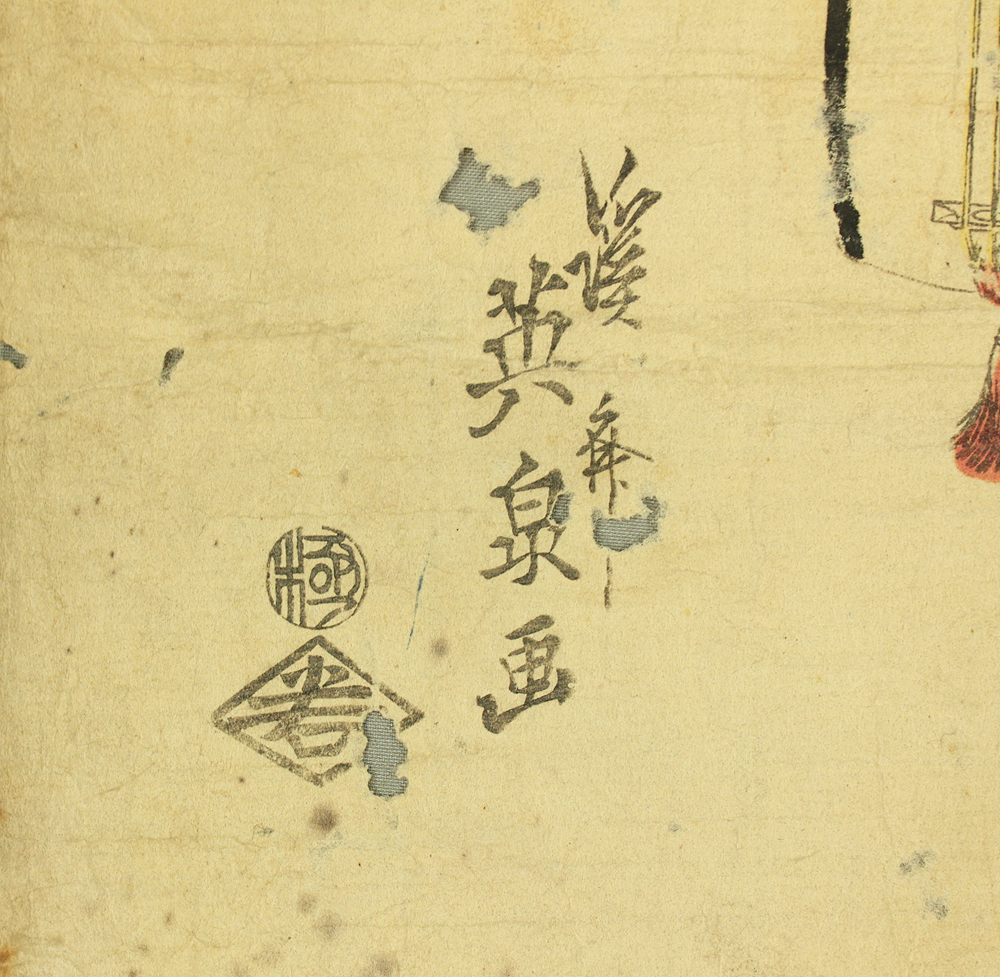 溪斎
英泉画
極